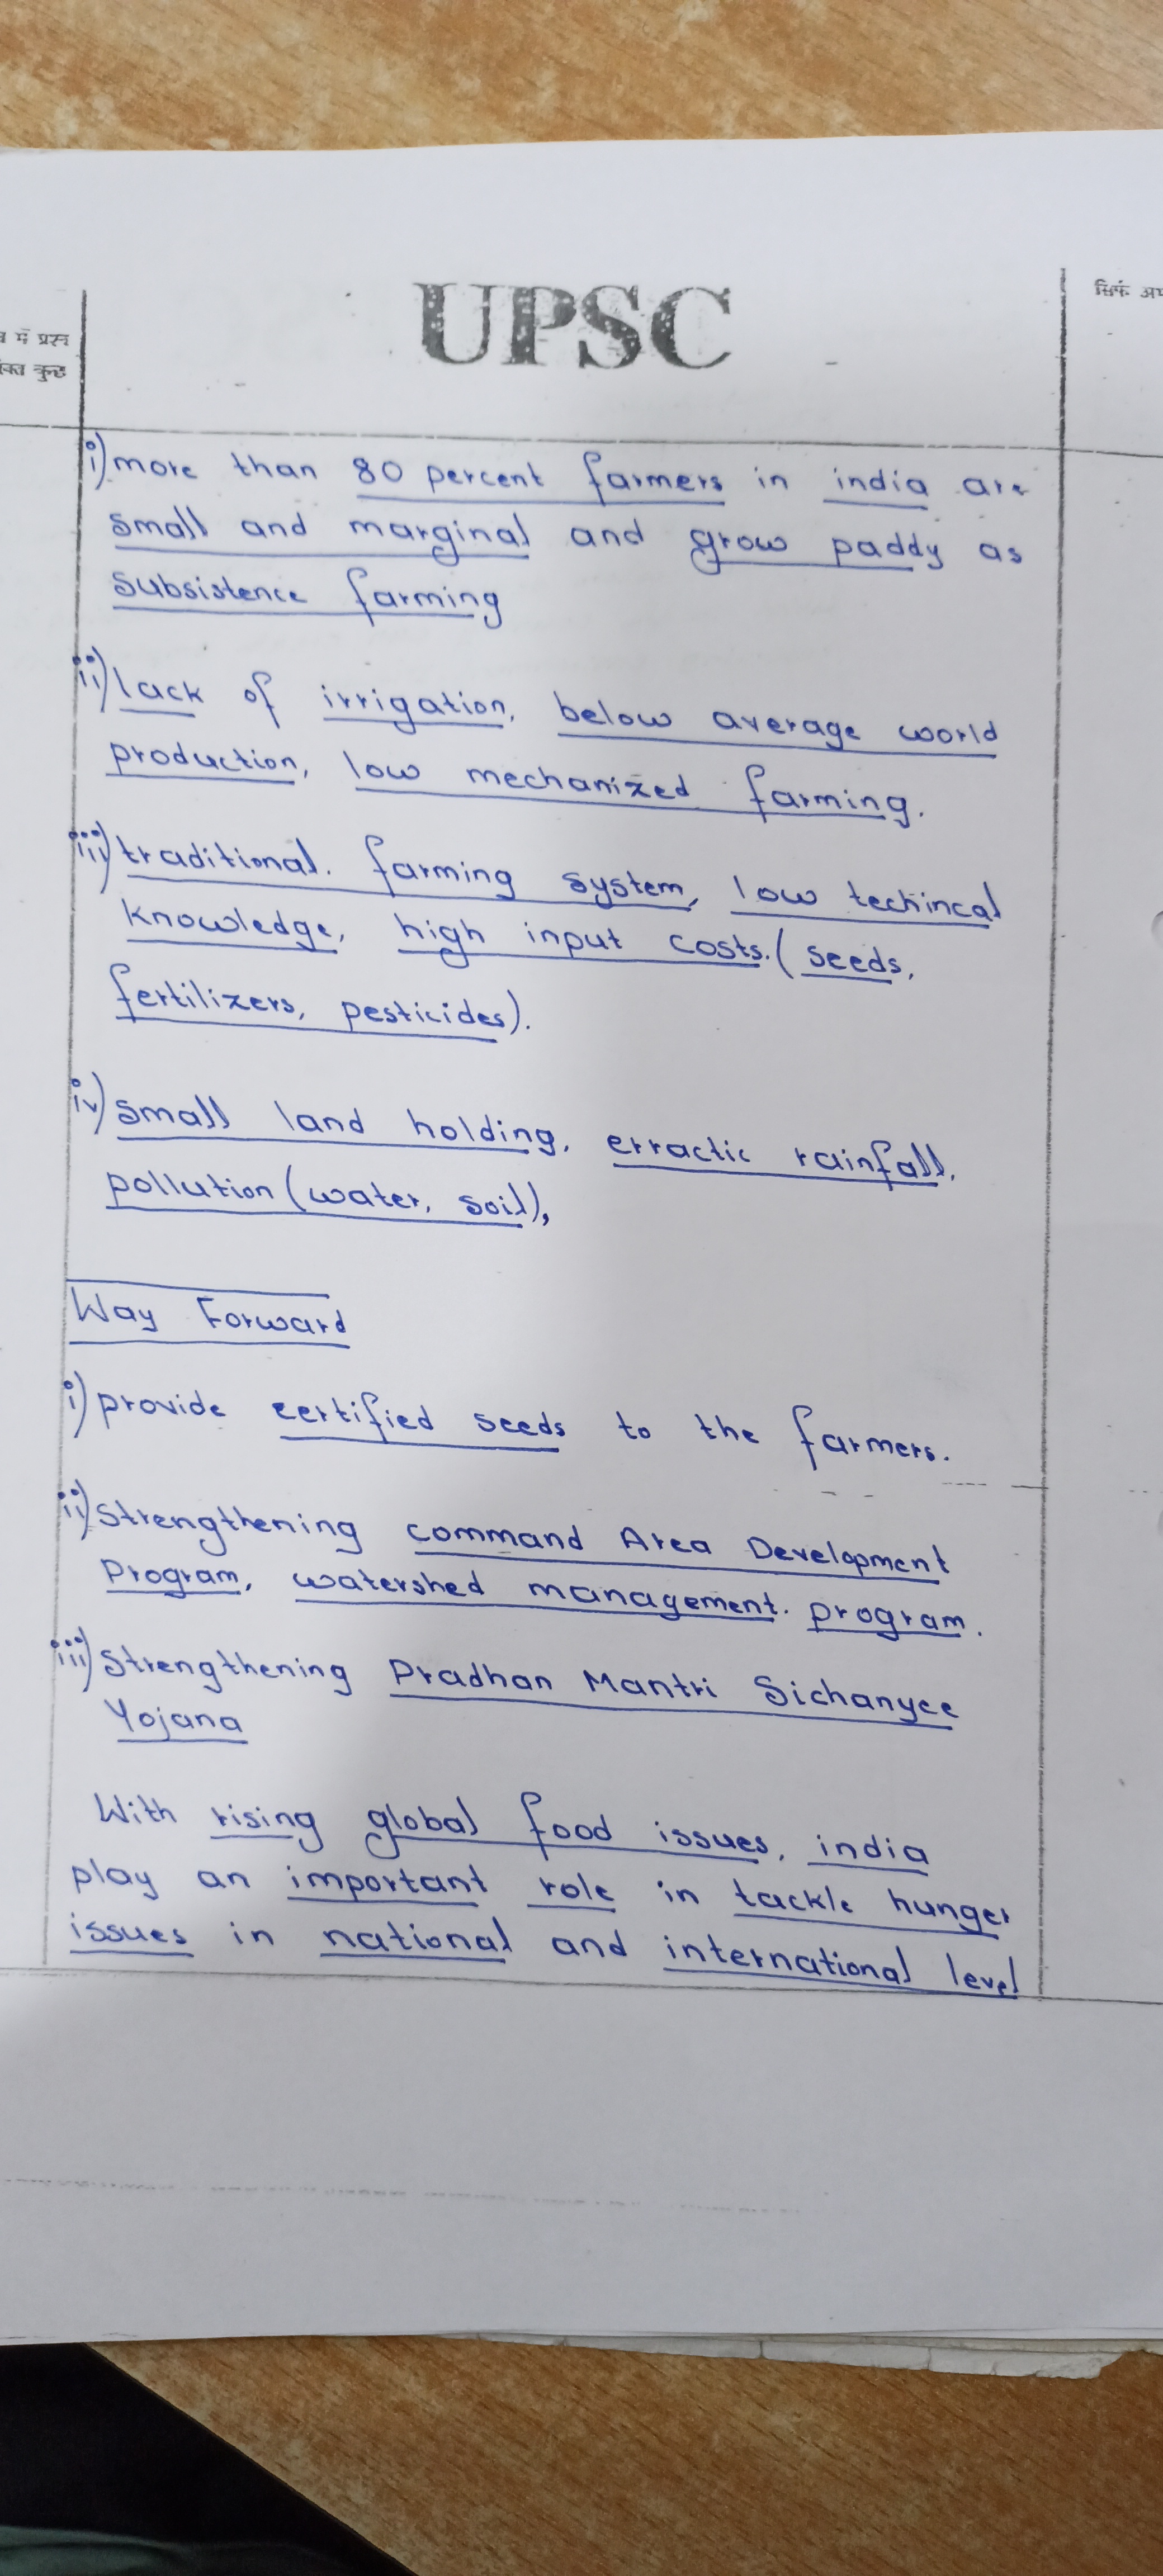 UPSC
में प्रश्न
सिर्फ अ
कुछ
i) more than 80 percent farmers in india are
small and marginal and grow paddy as
subsistence farming
ii) lack of irrigation, below average world
production, low mechanized farming.
iii) traditional. farming system, low techincal
knowledge, high input costs. (seeds,
fertilizers, pesticides).
iv) small land holding, erractic rainfall,
pollution (water, soil),
Way Forward
i) provide certified seeds to the farmers.
ii) Strengthening command Area Development
Program, watershed management. program.
iii) Strengthening Pradhan Mantri Sichanyee
Yojana
With rising global food issues, india
play an important role in tackle hunger
issues in national and international level